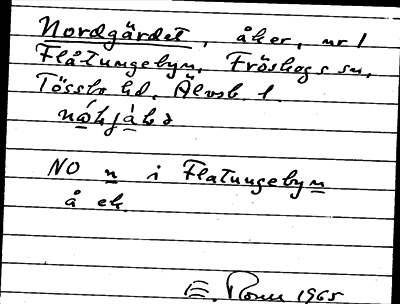 Nordgärdet, åker, nr 1
Flåtungebyn, Fröskogs sn,
Tössbo hd. Älvsb. l.
NO n i Flatungebyn
å ek.
E. 1965